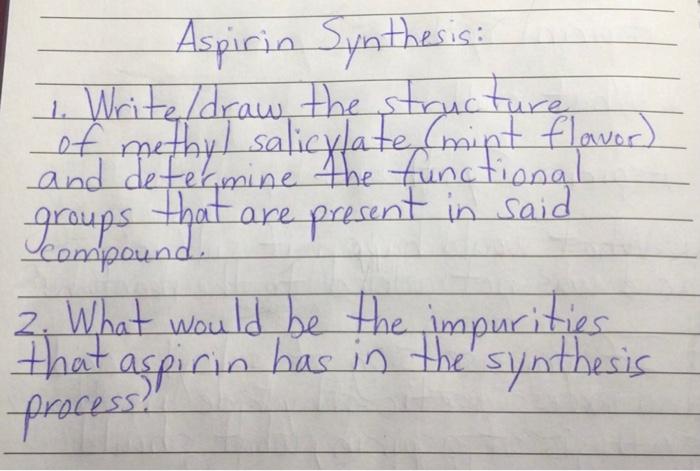 Aspirin Synthesis:
1. Write/draw the structure
of methyl salicylate (mint flavor)
and determine the functional
groups that are present in said
compound.
2. What would be the impurities
that aspirin has in the synthesis
process?